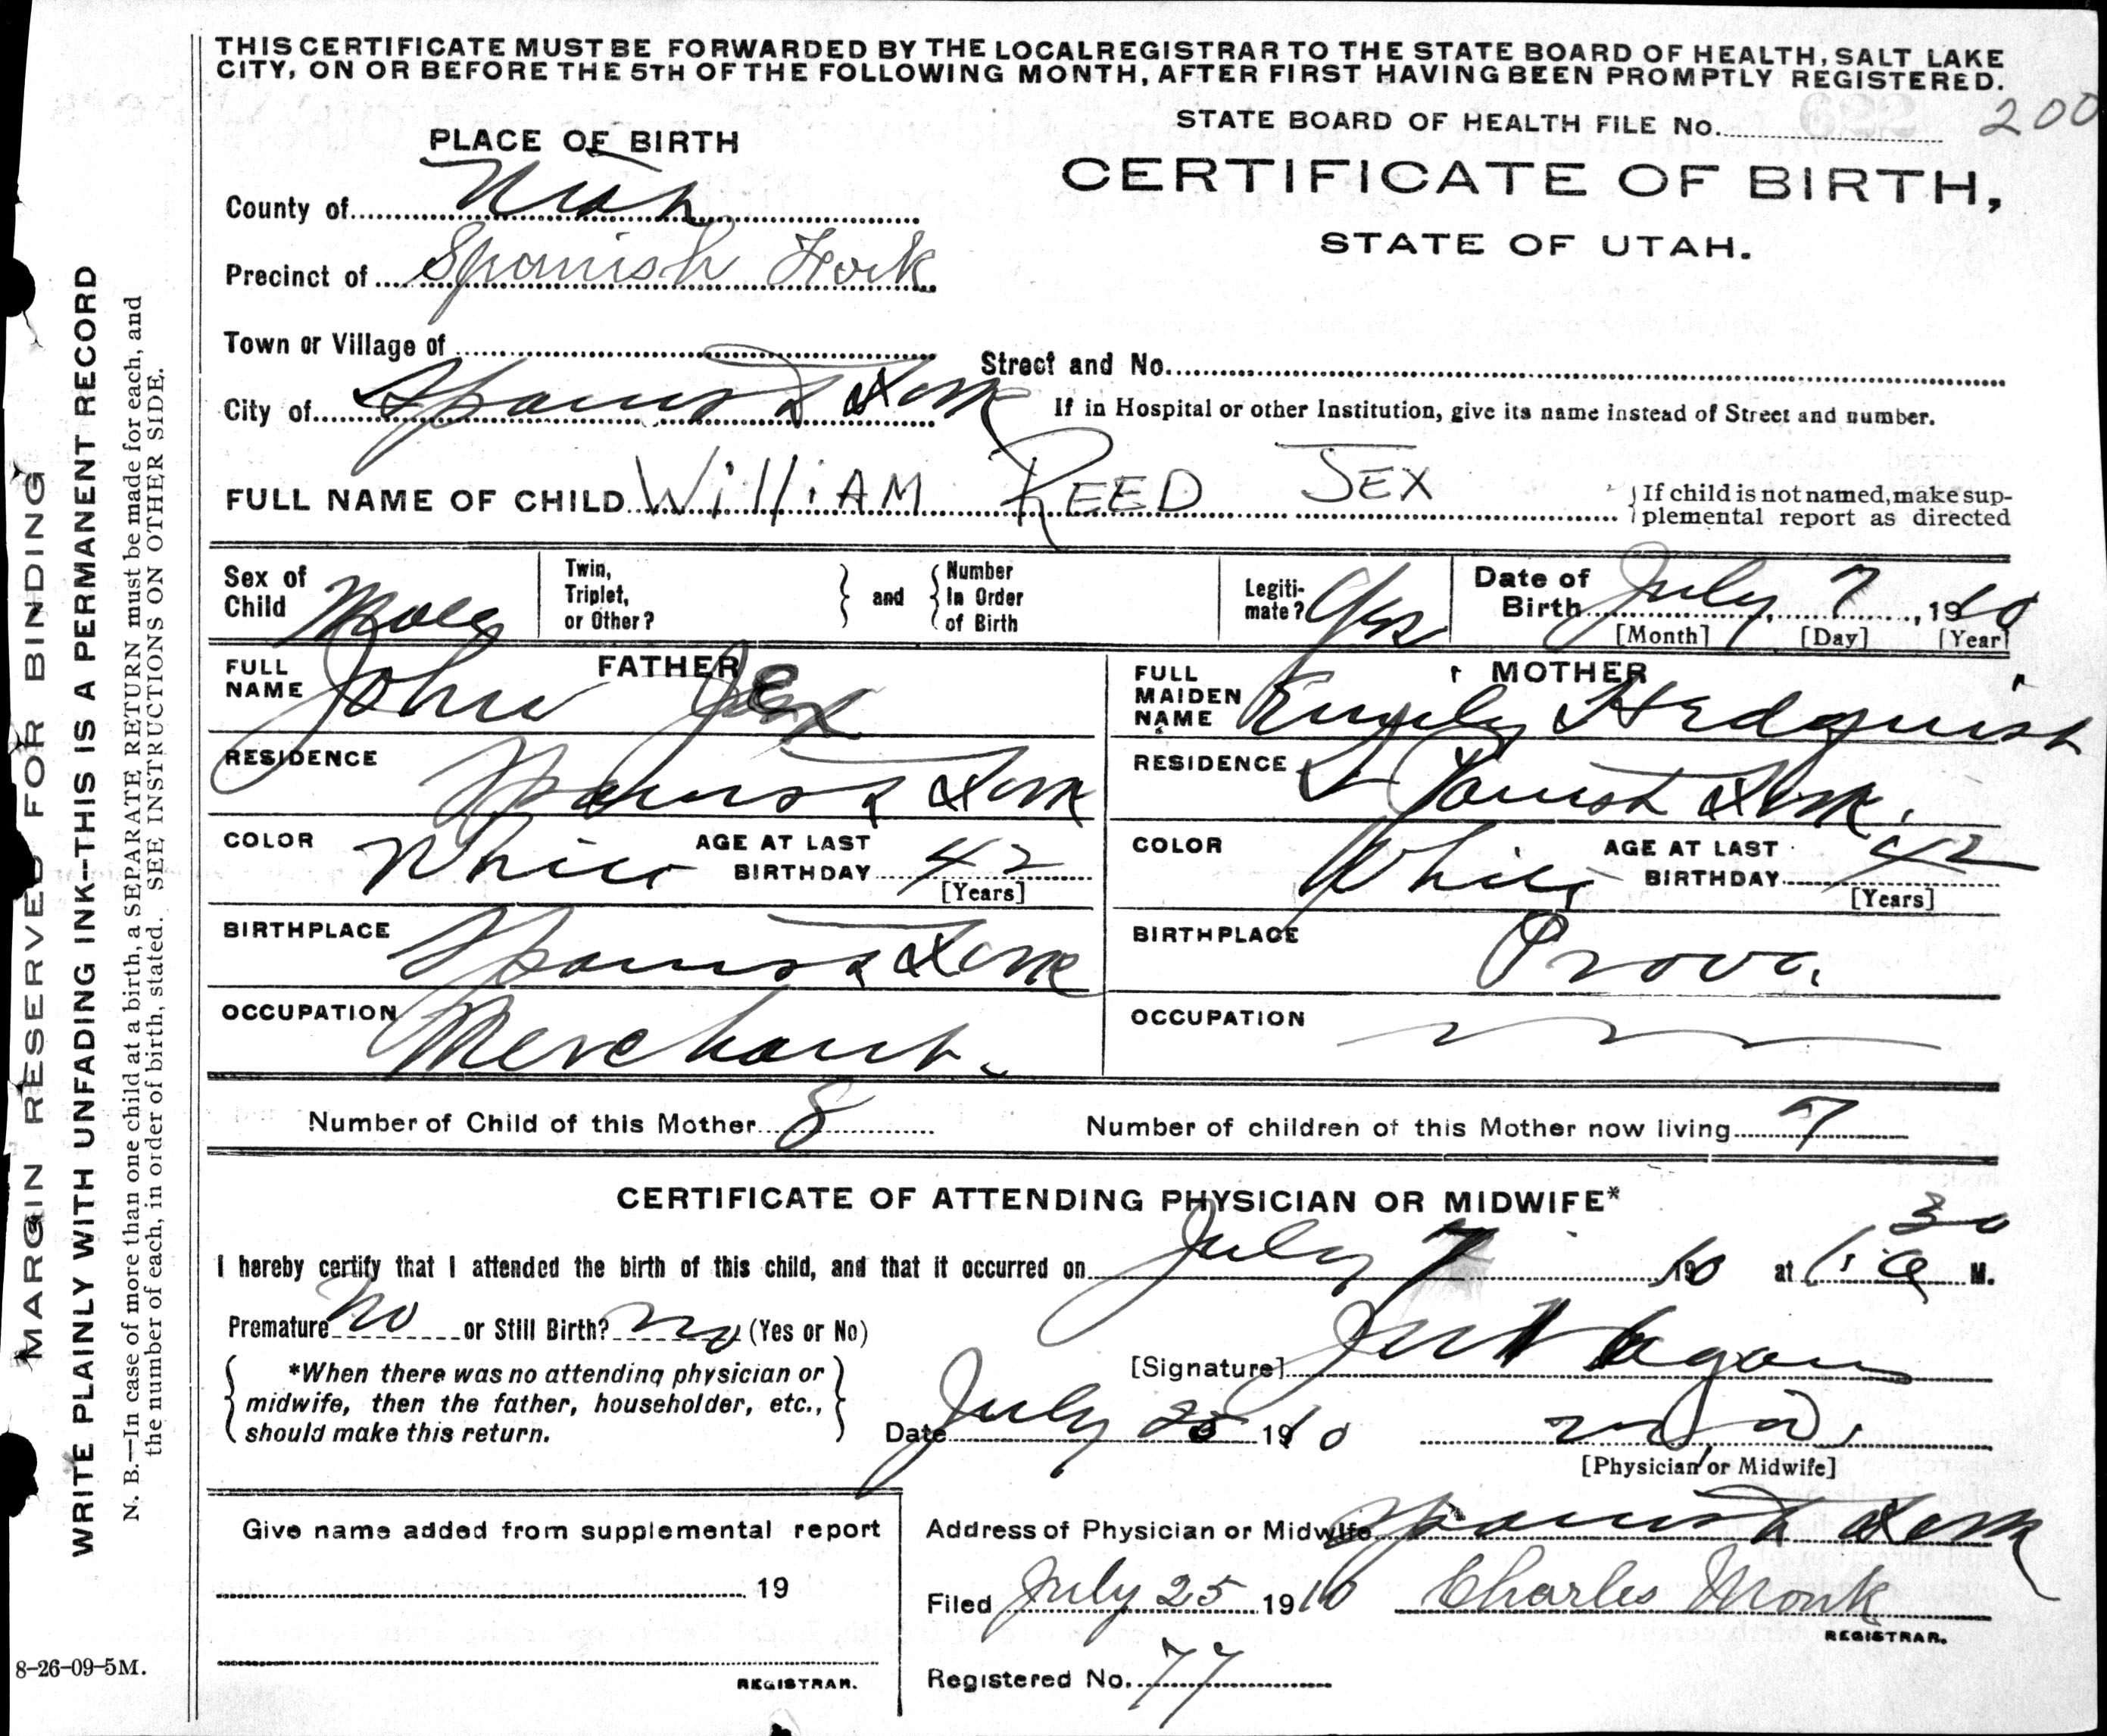 THIS CERTIFICATE MUST BE FORWARDED BY THE LOCAL REGISTRAR TO THE STATE BOARD OF HEALTH, SALT LAKE
CITY, ON OR BEFORE THE 5TH OF THE FOLLOWING MONTH, AFTER FIRST HAVING BEEN PROMPTLY REGISTERED.
STATE BOARD OF HEALTH FILE No. 200
PLACE OF BIRTH
CERTIFICATE OF BIRTH,
STATE OF UTAH.
County of Utah
Precinct of Spanish Fork
Town or Village of
Street and No.
City of Spanish Fork
If in Hospital or other Institution, give its name instead of Street and number.
FULL NAME OF CHILD WilliAM REED JEX
If child is not named, make sup-
plemental report as directed
Sex of Child Male
Twin, Triplet, or Other? and Number In Order of Birth
Legiti-mate? Yes
Date of Birth July 7, 1910
[Month] [Day] [Year]
FATHER
FULL NAME John Jex
RESIDENCE Spanish Fork
COLOR White AGE AT LAST BIRTHDAY 42 [Years]
BIRTHPLACE Spanish Fork
OCCUPATION Merchant.
MOTHER
FULL MAIDEN NAME Hedquist
RESIDENCE Spanish Fork.
COLOR White AGE AT LAST BIRTHDAY 42 [Years]
BIRTHPLACE Provo.
OCCUPATION
Number of Child of this Mother 8 Number of children of this Mother now living 7
CERTIFICATE OF ATTENDING PHYSICIAN OR MIDWIFE*
I hereby certify that I attended the birth of this child, and that it occurred on July 7 1910 at 1:30 a M.
Premature No or Still Birth? No (Yes or No)
*When there was no attending physician or
midwife, then the father, householder, etc.,
should make this return.
[Signature]
Date July 25 1910 M.D.
[Physician or Midwife]
Give name added from supplemental report
19
REGISTRAR.
Address of Physician or Midwife Spanish Fork
Filed July 25 1910 Charles Monk
REGISTRAR.
Registered No. 77
MARGIN RESERVED FOR BINDING
WRITE PLAINLY WITH UNFADING INK—THIS IS A PERMANENT RECORD
N. B.—In case of more than one child at a birth, a SEPARATE RETURN must be made for each, and
the number of each, in order of birth, stated. SEE INSTRUCTIONS ON OTHER SIDE.
8-26-09-5M.